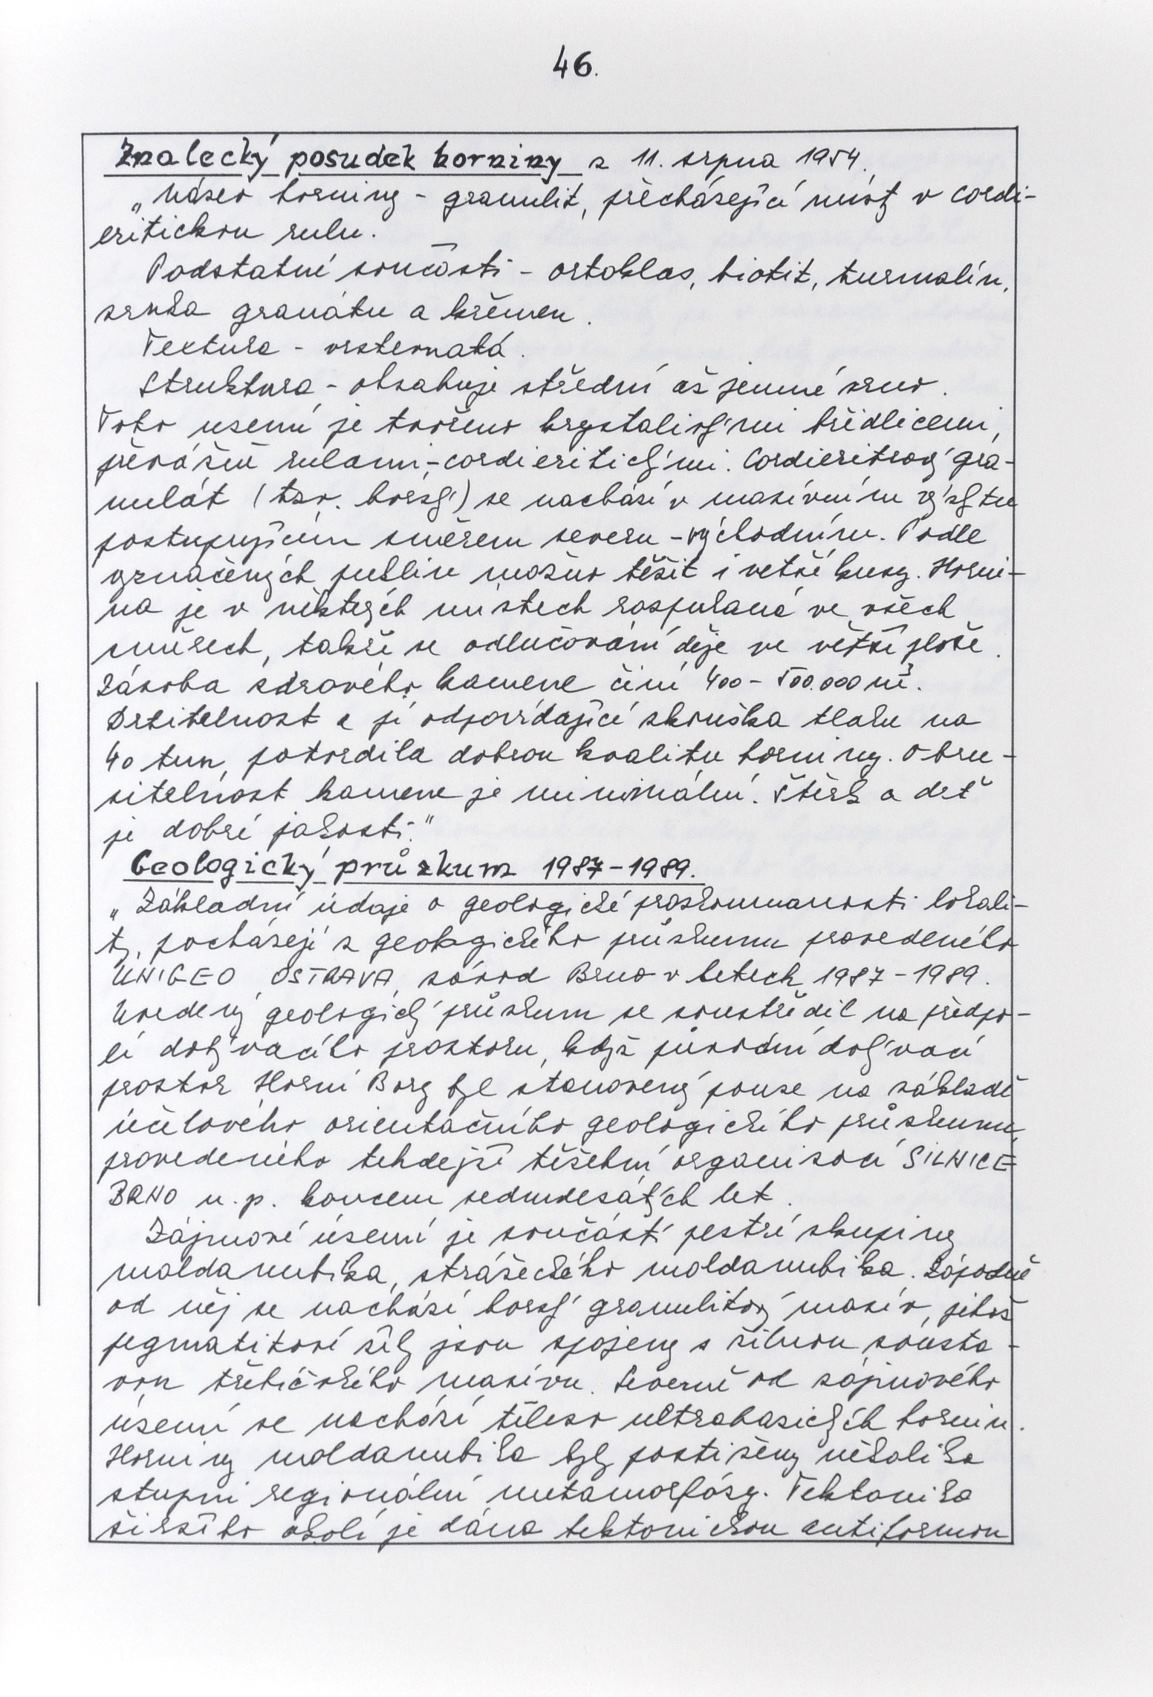 46.
Znalecký posudek horniny z 11. srpna 1954.
„Název horniny - granulit, přecházející místy v cordi-
eritickou rulu.
Podstatné součásti - ortoklas, biotit, turmalín,
zrnka granátu a křemen.
Textura - vrstevnatá.
Struktura - obsahuje střední až jemné zrno.
Toto území je tvořeno krystalickými břidlicemi,
převážně rulami, cordieritickými. Cordieritový gra-
nulát (tzv. borský) se nachází v masívním výskytu
postupujícím směrem severu - východním. Podle
vyznačených puklin možno těžit i větší kusy. Horni-
na je v některých místech rozpukaná ve všech
směrech, takže se odlučování děje ve větší ploše.
Zásoba zdravého kamene činí 400 - 500.000 m³.
Drtitelnost a jí odpovídající zkouška tlaku na
40 tun, potvrdila dobrou kvalitu horniny. Obru-
sitelnost kamene je minimální. Štěrk a drť
je dobré jakosti."
Geologický průzkum 1987-1989.
„Základní údaje o geologické prozkoumanosti lokali-
ty, pocházejí z geologického průzkumu provedeného
UNIGEO OSTRAVA, závod Brno v letech 1987-1989.
Uvedený geologický průzkum se soustředil na předpo-
lí dobývacího prostoru, když původní dobývací
prostor Horní Bory byl stanovený pouze na základě
účelového orientačního geologického průzkumu,
provedeného tehdejší těžební organizací SILNICE
BRNO n. p. koncem sedmdesátých let.
Zájmové území je součástí pestré skupiny
moldanubika, strážeckého moldanubika. Západně
od něj se nachází borský granulitový masív, jehož
pegmatitové žíly jsou spojeny s žilnou sousta-
vou třebíčského masívu. Severně od zájmového
území se nachází těleso ultrabasických hornin.
Horniny moldanubika byly postiženy několika
stupni regionální metamorfózy. Tektonika
širšího okolí je dána tektonickou antiformou